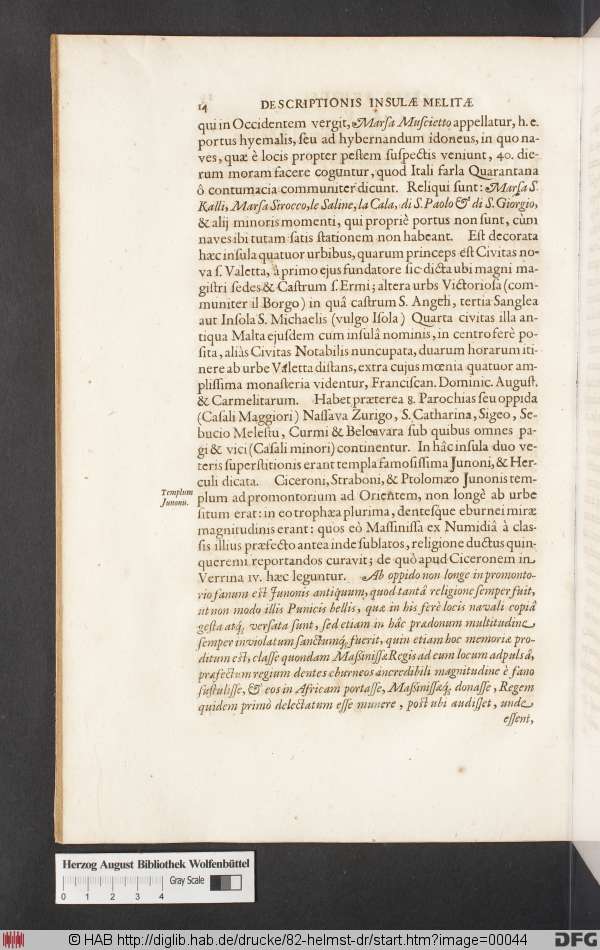 14 DESCRIPTIONIS INSULÆ MELITÆ
qui in Occidentem vergit, Marſa Muſcietto appellatur, h. e.
portus hyemalis, ſeu ad hybernandum idoneus, in quo na-
ves, quæ è locis propter peſtem ſuſpectis veniunt, 40. die-
rum moram facere coguntur, quod Itali farla Quarantana
ô contumacia communiter dicunt. Reliqui ſunt: Marſa S.
Kalli, Marſa Sirocco, le Saline, la Cala, di S. Paolo & di S. Giorgio,
& alij minoris momenti, qui propriè portus non ſunt, cùm
naves ibi tutam ſatis ſtationem non habeant. Eſt decorata
hæc inſula quatuor urbibus, quarum princeps eſt Civitas no-
va ſ. Valetta, à primo ejus fundatore ſic dicta ubi magni ma-
giſtri ſedes & Caſtrum ſ. Ermi; altera urbs Victorioſa (com-
muniter il Borgo) in quâ caſtrum S. Angeli, tertia Sanglea
aut Inſola S. Michaelis (vulgo Iſola) Quarta civitas illa an-
tiqua Malta ejuſdem cum inſulâ nominis, in centro ferè po-
ſita, aliàs Civitas Notabilis nuncupata, duarum horarum iti-
nere ab urbe Valetta diſtans, extra cujus mœnia quatuor am-
pliſſima monaſteria videntur, Franciſcan. Dominic. Auguſt.
& Carmelitarum. Habet præterea 8. Parochias ſeu oppida
(Caſali Maggiori) Naſſava Zurigo, S. Catharina, Sigeo, Se-
bucio Meleſtu, Curmi & Beloavara ſub quibus omnes pa-
gi & vici (Caſali minori) continentur. In hâc inſula duo ve-
teris ſuperſtitionis erant templa famoſiſſima Junoni, & Her-
culi dicata. Ciceroni, Straboni, & Ptolomæo Junonis tem-
Templum
Junonis.
plum ad promontorium ad Orientem, non longè ab urbe
ſitum erat: in eo trophæa plurima, denteſque eburnei miræ
magnitudinis erant: quos eò Maſſiniſſa ex Numidiâ à claſ-
ſis illius præfecto antea inde ſublatos, religione ductus quin-
queremi reportandos curavit; de quò apud Ciceronem in
Verrina IV. hæc leguntur. Ab oppido non longe in promonto-
rio fanum eſt Junonis antiquum, quod tantâ religione ſemper fuit,
ut non modo illis Punicis bellis, quæ in his ferè locis navali copiâ
geſta atq; verſata ſunt, ſed etiam in hâc prædonum multitudine
ſemper inviolatum ſanctumq; fuerit, quin etiam hoc memoriæ pro-
ditum eſt, claſſe quondam Maſsiniſſæ Regis ad eum locum adpulsâ,
præfectum regium dentes eburneos incredibili magnitudine è fano
ſuſtuliſſe, & eos in Africam portaſſe, Maſsiniſſæq; donaſſe, Regem
quidem primò delectatum eſſe munere, poſt ubi audiſſet, unde
eſſent,
Herzog August Bibliothek Wolfenbüttel
Gray Scale
0 1 2 3 4
© HAB http://diglib.hab.de/drucke/82-helmst-dr/start.htm?image=00044
DFG